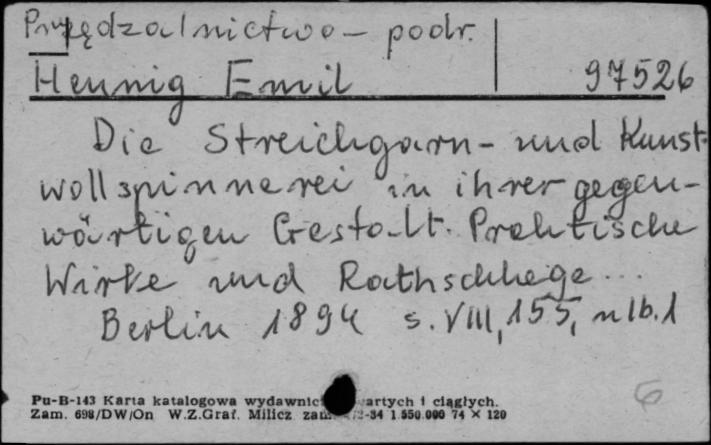 Przędzalnictwo - podr.
Hennig Emil 97526
Die Streichgarn- und Kunst-
wollspinnerei in ihrer gegen-
wärtigen Gestalt. Praktische
Winke und Rathschläge...
Berlin 1894 s. VIII, 155, nlb. 1
Pu-B-143 Karta katalogowa wydawnict artych i ciągłych.
Zam. 698/DW/On W.Z.Graf. Milicz zam. -34 1.550.000 74 × 120
6